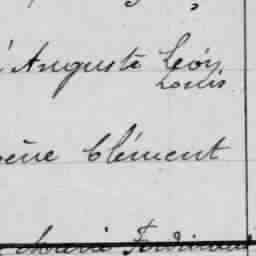 Auguste Léon
Louis
ène Clément
Marie Ferdinand